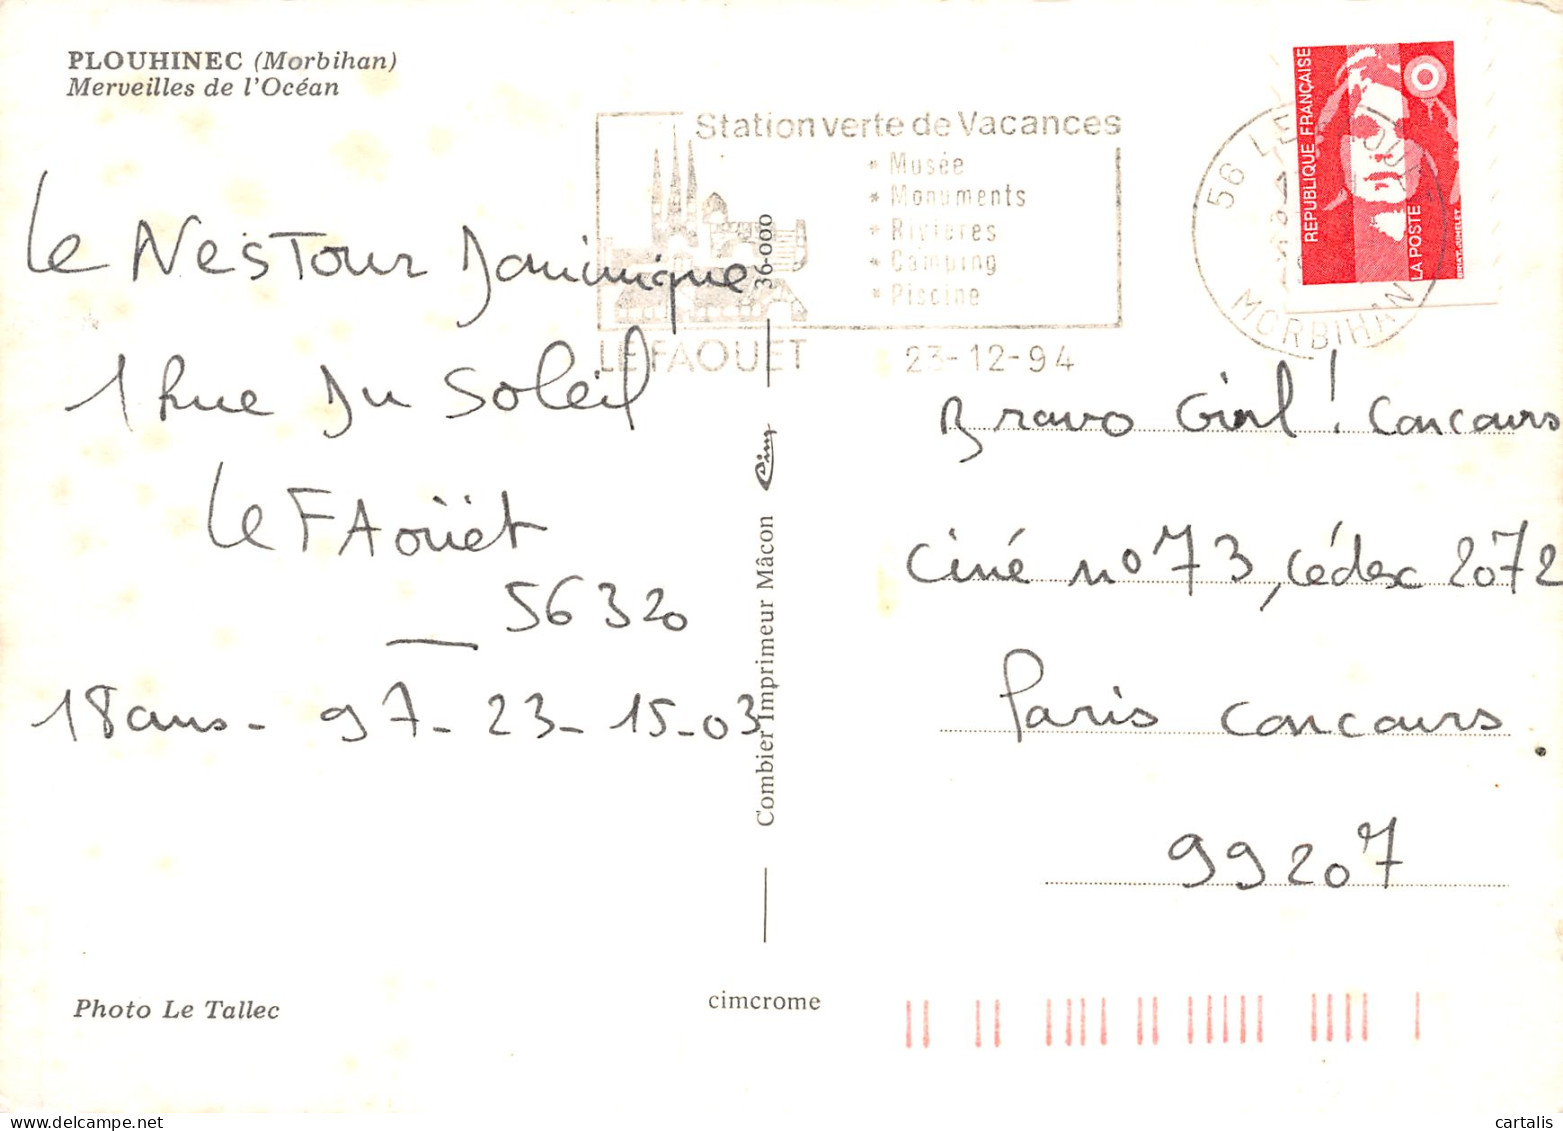 PLOUHINEC (Morbihan)
Merveilles de l'Océan
Le NesTour Dominique
1 Rue Du Soleil
Le FAoüët
56320
18 ans - 97 - 23 - 15 - 03
Photo Le Tallec
Station verte de Vacances
* Musée
* Monuments
* Rivières
* Camping
* Piscine
LE FAOUET
23-12-94
56 LE
MORBIHAN
REPUBLIQUE FRANÇAISE
LA POSTE
36-000
Combier Imprimeur Mâcon Cim
cimcrome
Bravo Girl ! Concours
Ciné no 73, Cédex 2072
Paris Concours
99207
cartalis